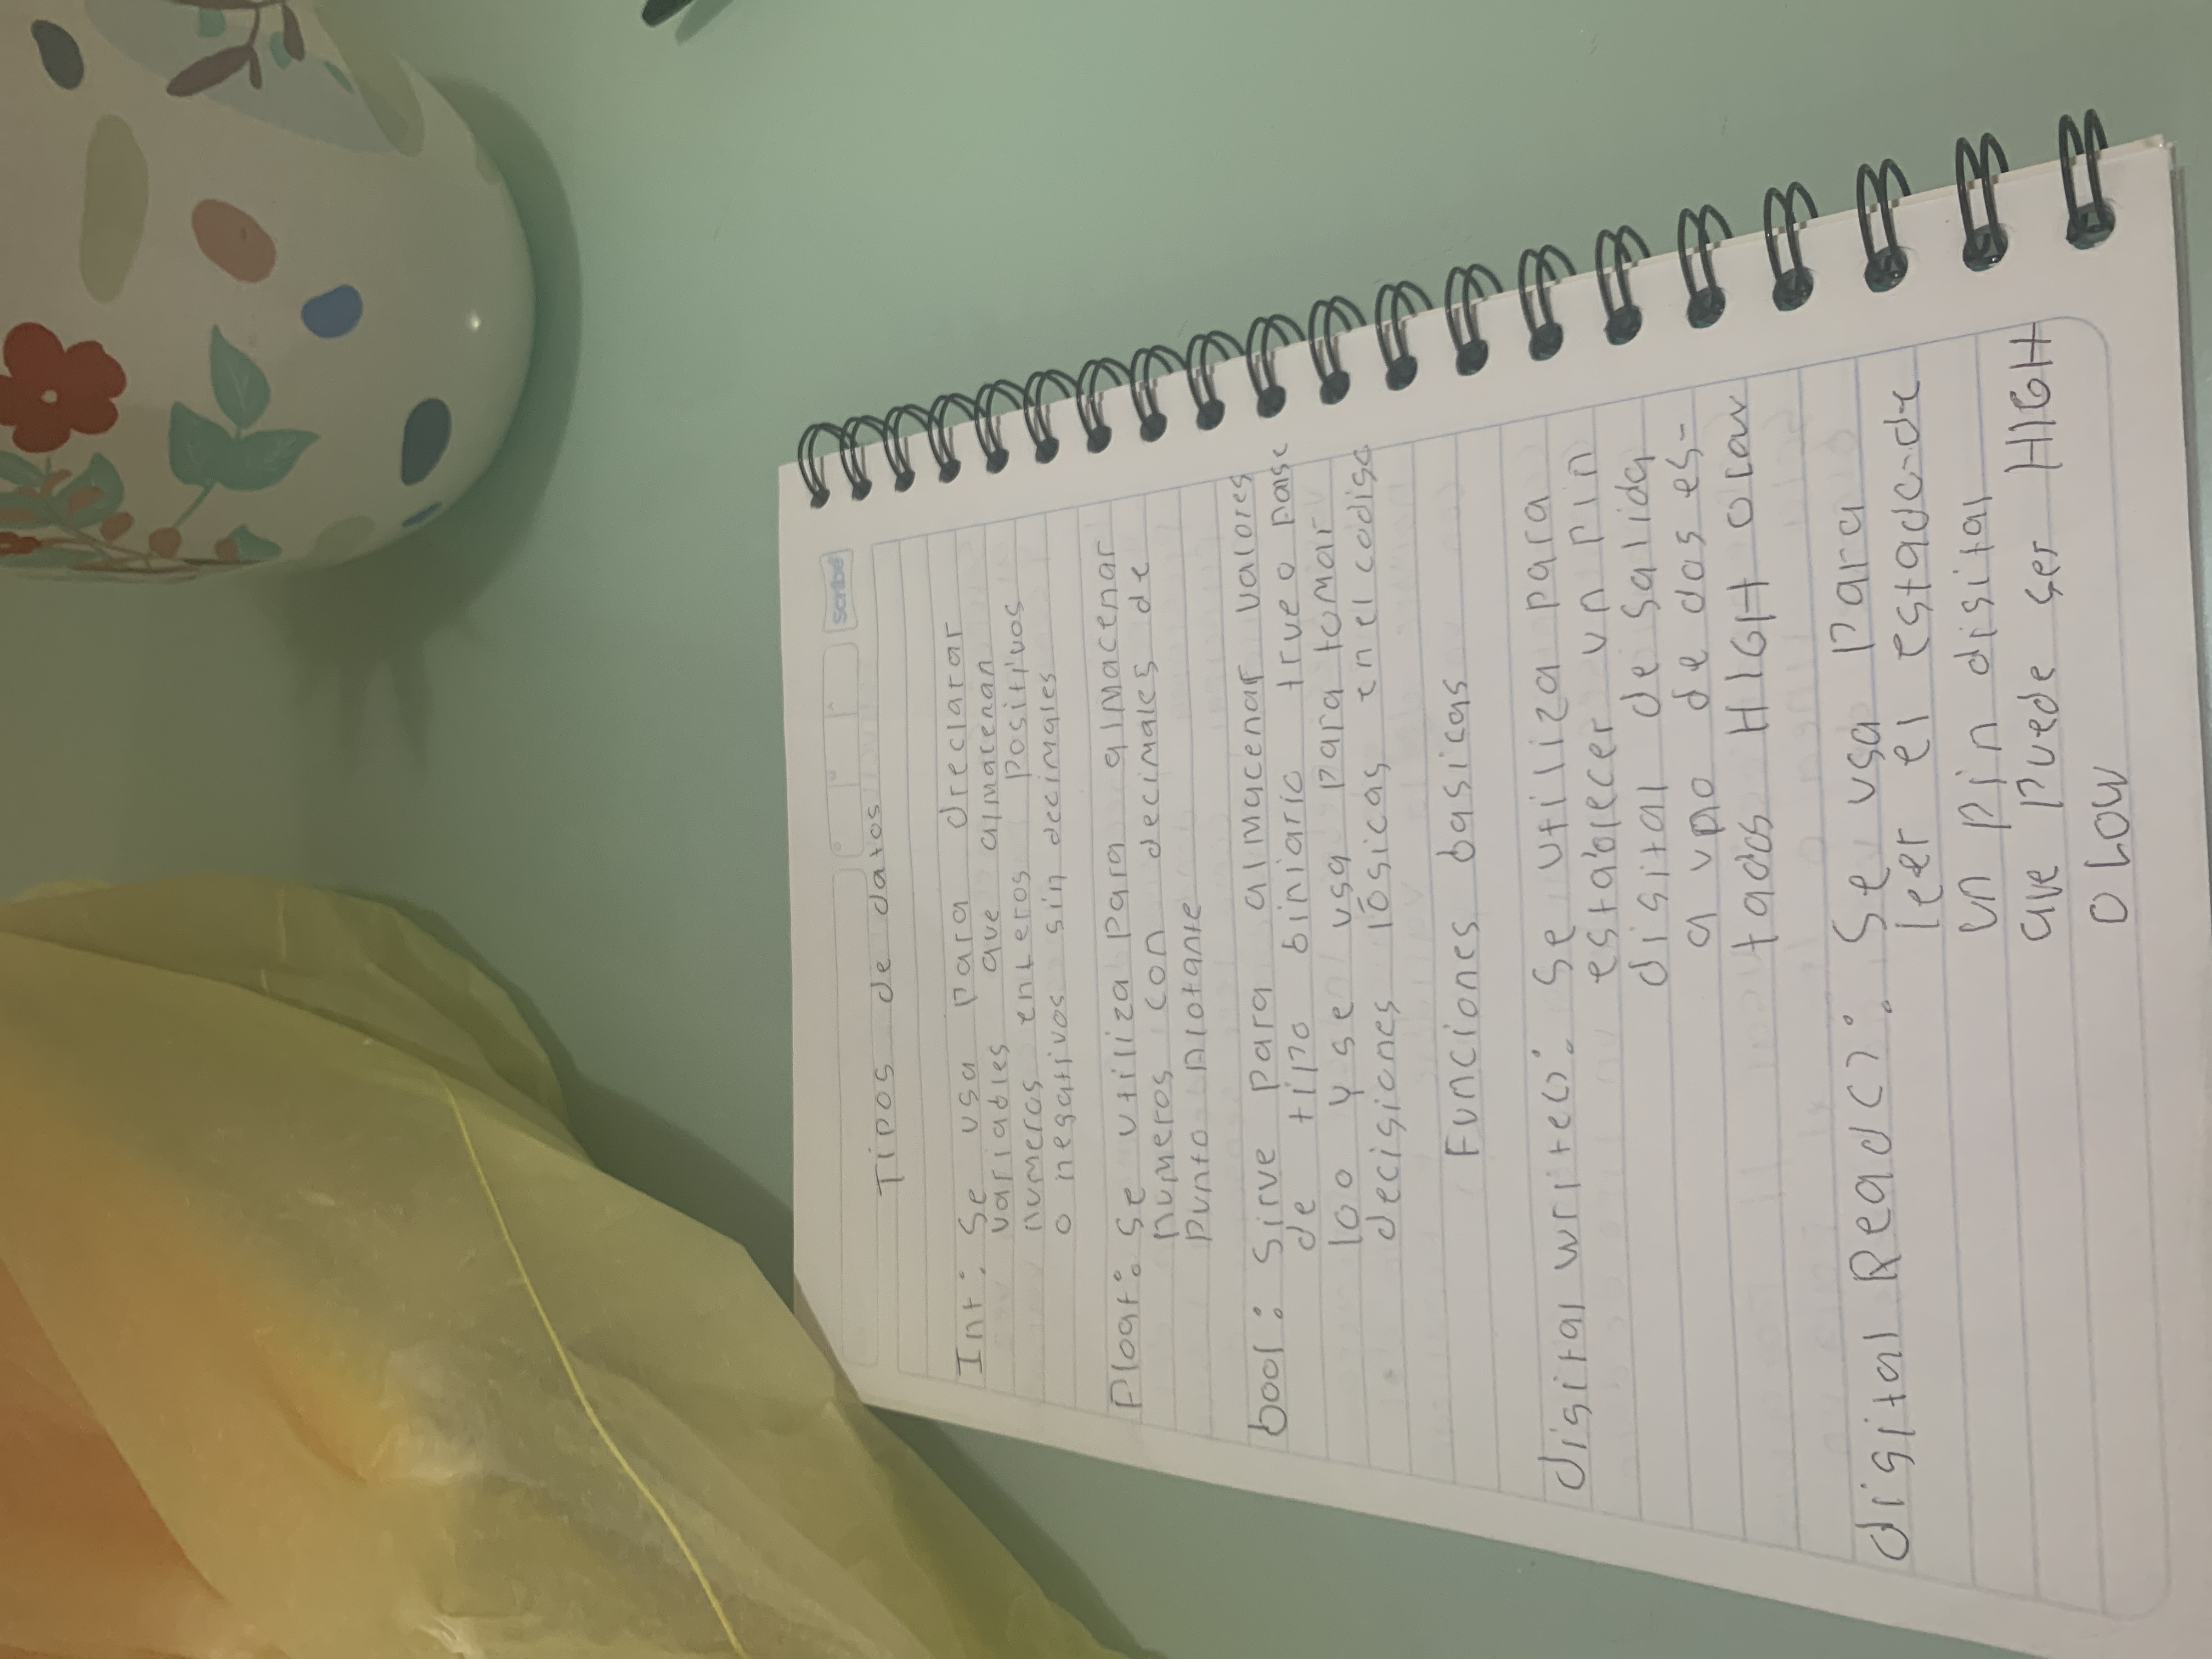 scribe
Tipos de datos
Int: Se usa para dreclarar
variables que almacenan
numeros enteros positivos
o negativos sin decimales
Float: se utiliza para almacenar
numeros con decimales de
punto flotante
bool: sirve para almacenar valores
de tipo biniario true o false
100 y se usa para tomar
decisiones lógicas en el codigo
Funciones basicas
digital write(): se utiliza para
establecer un pin
digital de salida
a uno de dos es-
tados HIGH o Low
digital Read(): Se usa para
leer el estado de
un pin digital
que puede ser HIGH
o LOW